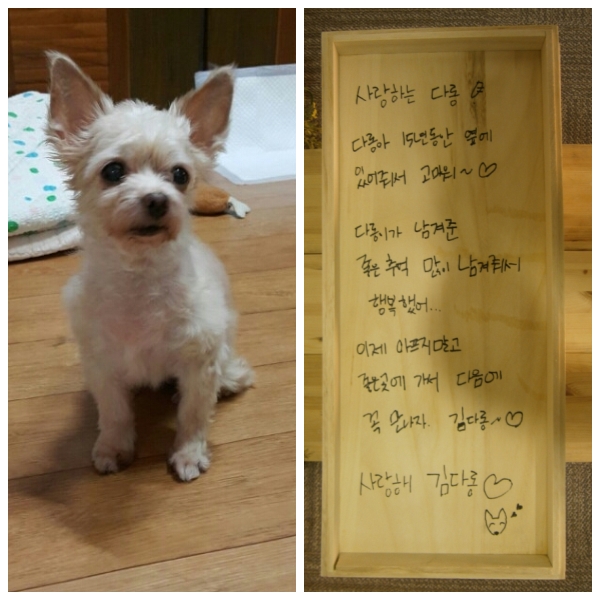 사랑하는 다롱
다롱아 15년동안 옆에
있어줘서 고마워~♡
다롱이가 남겨준
좋은 추억 많이 남겨줘서
행복했어...
이제 아프지말고
좋은곳에 가서 다음에
꼭 만나자. 김다롱~♡
사랑해 김다롱♡